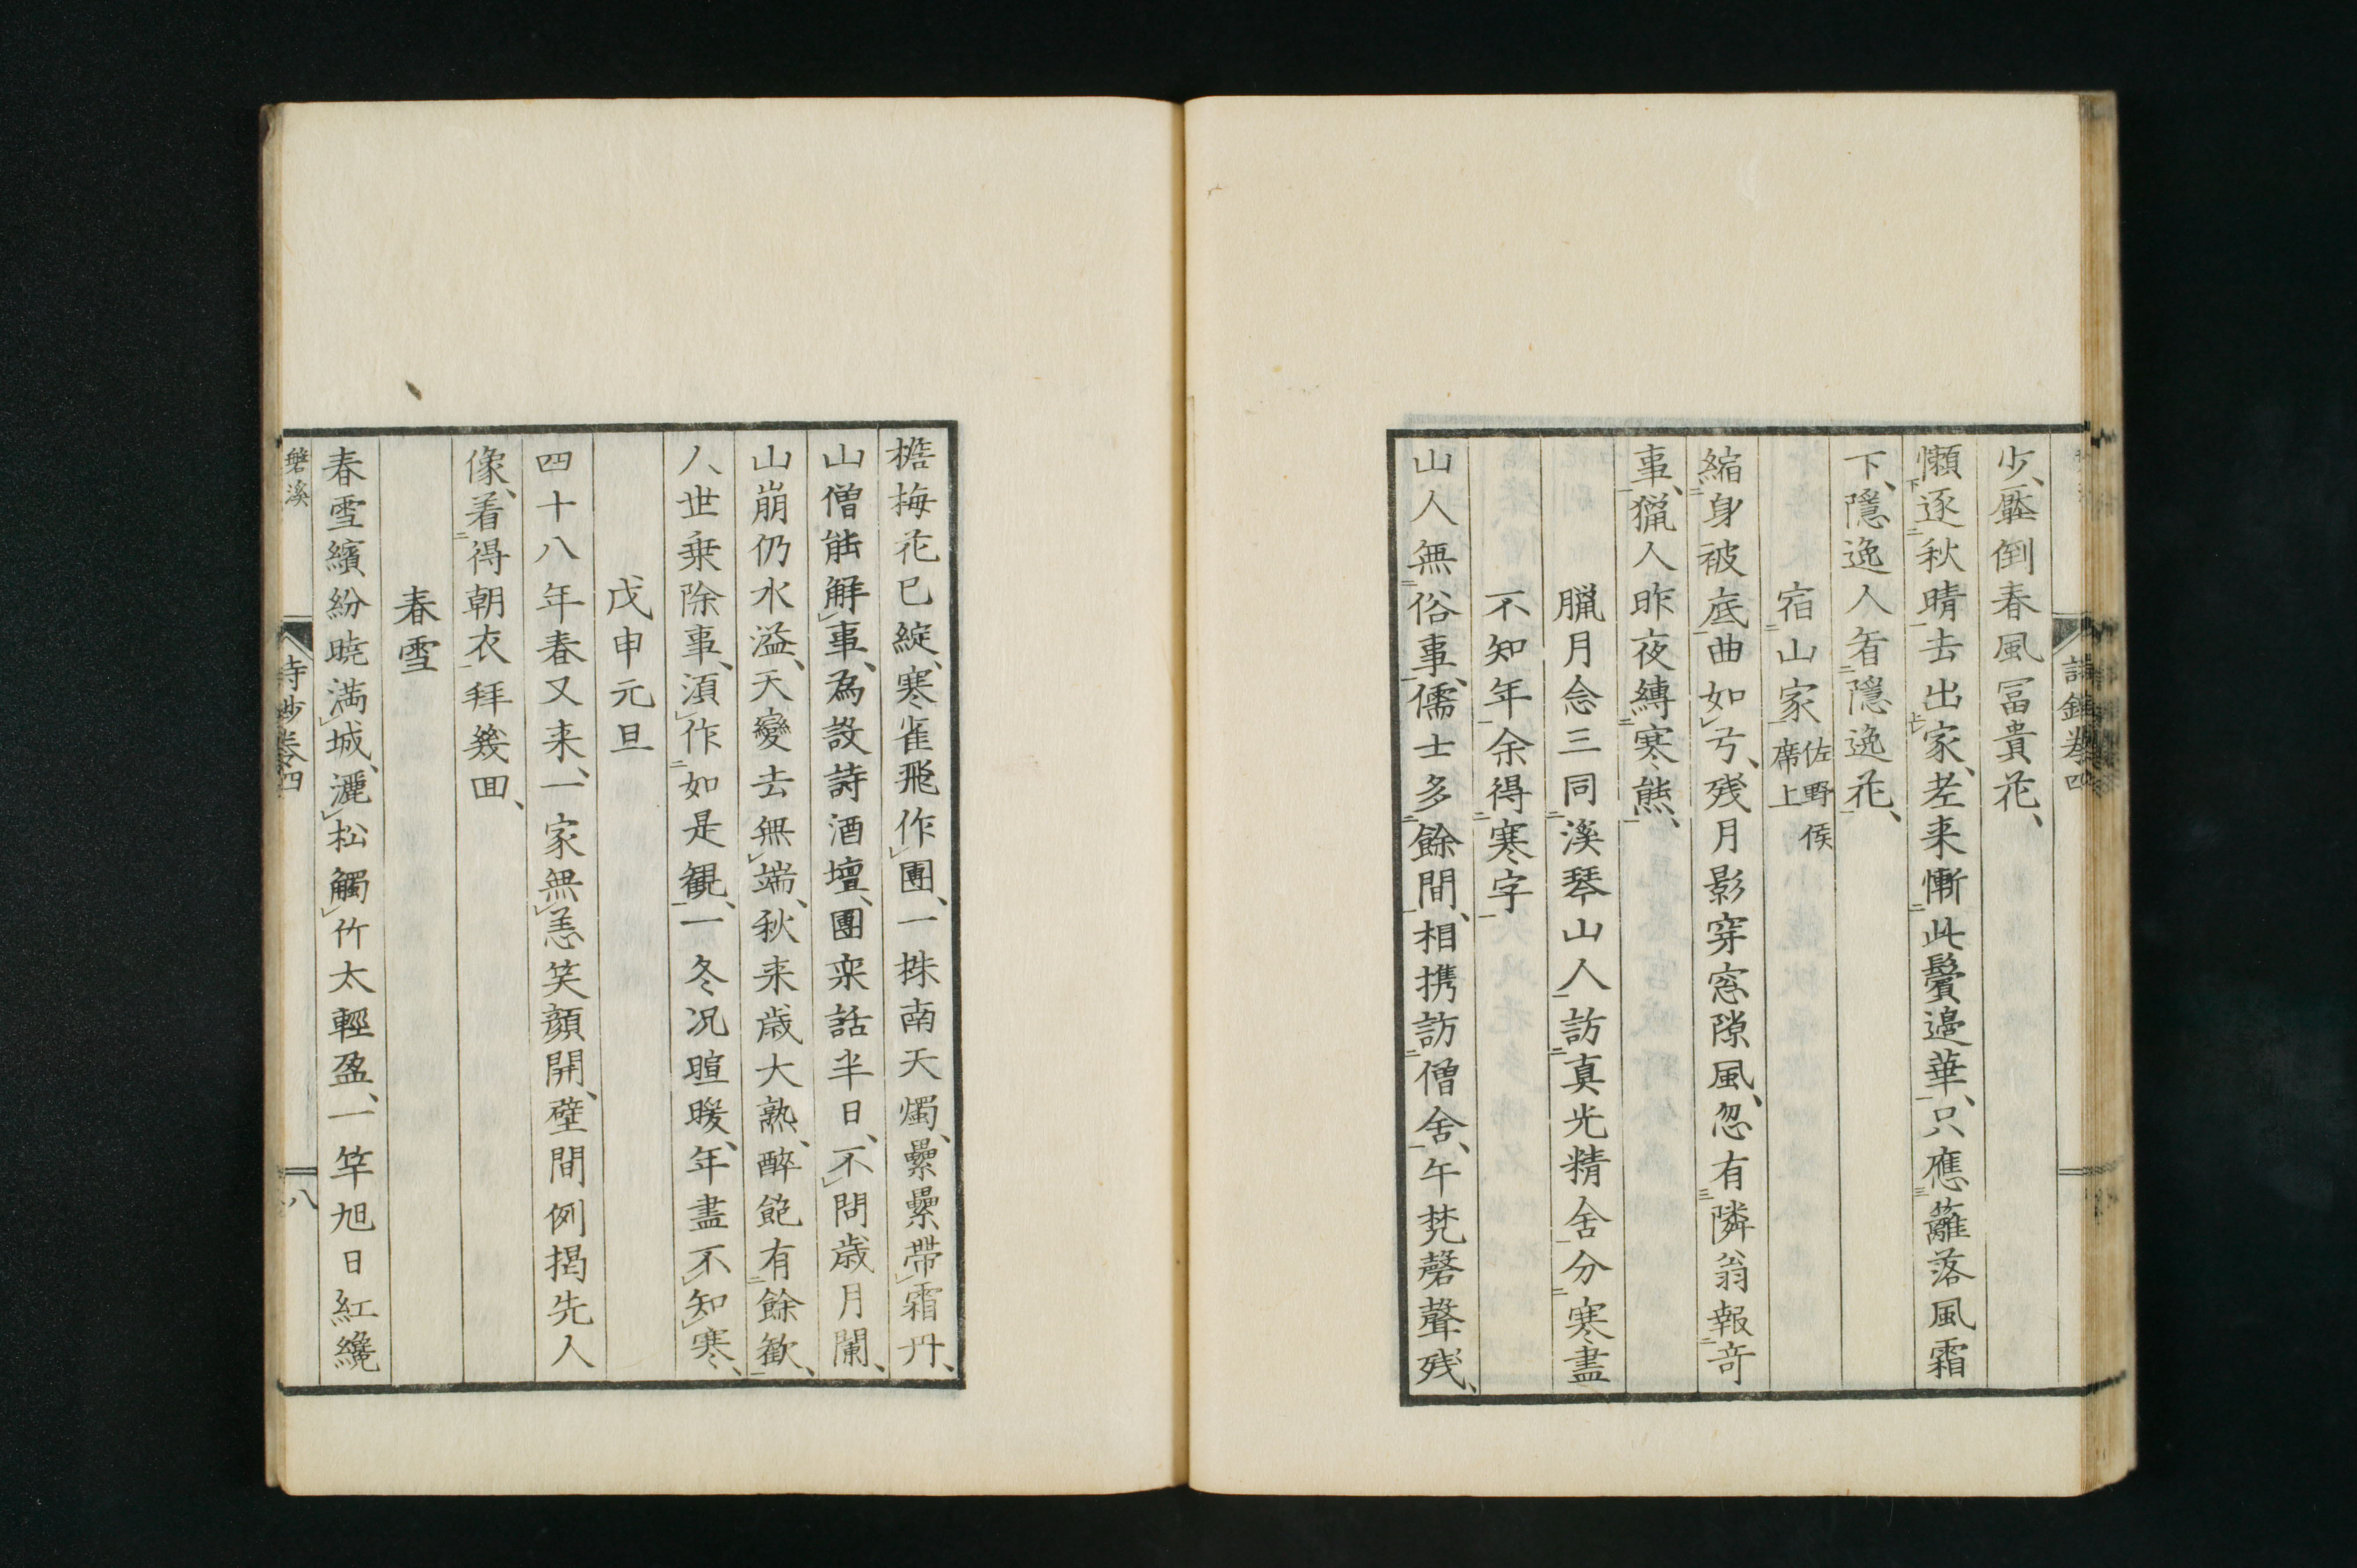 少、壓倒春風冨貴花、
懶逐秋晴去出家、老来慚此鬢邊華、只應蘺落風霜
下、隱逸人看隱逸花、
宿山家佐野侯席上
縮身被底曲如弓、残月影穿窓隙風、忽有隣翁報竒
事、猟人昨夜縛寒熊、
臘月念三同溪琴山人訪真光精舍分寒盡
不知年余得寒字
山人無俗事、儒士多餘間、相携訪僧舍、午梵磬聲残、
檐梅花已綻、寒雀飛作團、一株南天燭、纍纍帶霜丹、
山僧能解事、為設詩酒壇、團欒話半日、不問歳月闌、
山崩仍水溢、天變去無端、秋来歳大熟、醉飽有餘歡、
人世乗除事、須作如是観、一冬况暄暖、年盡不知寒、
戊申元旦
四十八年春又来、一家無恙笑顔開、壁間例掲先人
像、着得朝衣拜幾回、
春雪
春雪繽紛暁満城、灑松觸竹太輕盈、一竿旭日紅纔
磐溪
詩鈔卷四
八